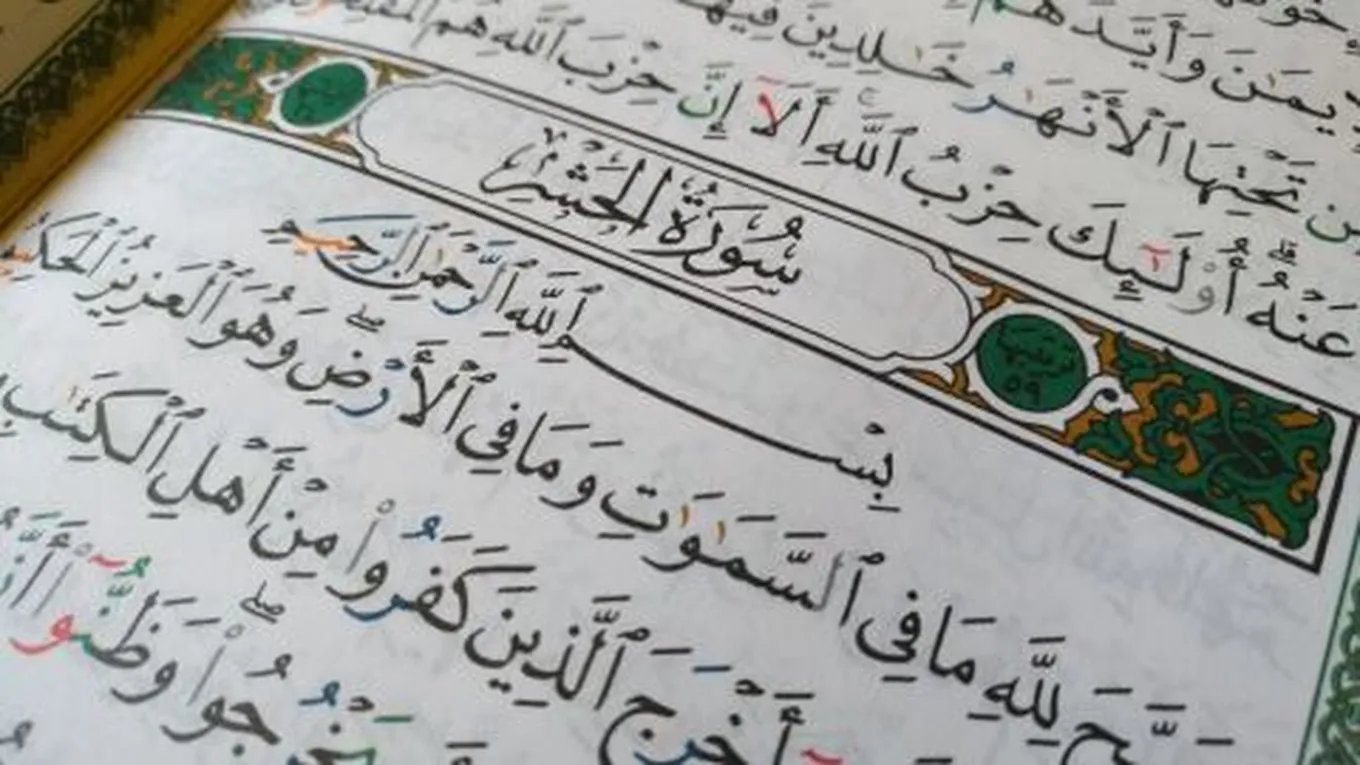 يمَـٰنَ وَأَيَّدَهُم
تَحْتِهَا ٱلْأَنْهَـٰرُ خَـٰلِدِينَ فِيهَا
عَنْهُ ۚ أُو۟لَـٰٓئِكَ حِزْبُ ٱللَّهِ ۚ أَلَآ إِنَّ حِزْبَ ٱللَّهِ هُمُ ٱلْمُفْلِحُونَ
سُورَةُ الْحَشْرِ
٥٩
بِسْمِ ٱللَّهِ ٱلرَّحْمَـٰنِ ٱلرَّحِيمِ
سَبَّحَ لِلَّهِ مَا فِى ٱلسَّمَـٰوَٰتِ وَمَا فِى ٱلْأَرْضِ ۖ وَهُوَ ٱلْعَزِيزُ ٱلْحَكِيمُ
أَخْرَجَ ٱلَّذِينَ كَفَرُوا۟ مِنْ أَهْلِ ٱلْكِتَـٰبِ
يَخْرُجُوا۟ ۖ وَظَنُّوٓا۟ أَنَّ